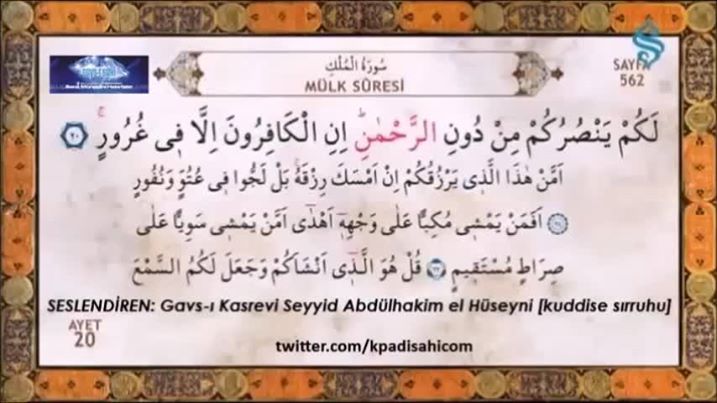 سُورَةُ الْمُلْكِ
MÜLK SÛRESİ
SAYFA
562
لَكُمْ يَنْصُرُكُمْ مِنْ دُونِ الرَّحْمٰنِۜ اِنِ الْكَافِرُونَ اِلَّا ف۪ي غُرُورٍۚ ﴿٢٠﴾
اَمَّنْ هٰذَا الَّذ۪ي يَرْزُقُكُمْ اِنْ اَمْسَكَ رِزْقَهُۚ بَلْ لَجُّوا ف۪ي عُتُوٍّ وَنُفُورٍ
﴿٢١﴾ اَفَمَنْ يَمْش۪ي مُكِبًّا عَلٰى وَجْهِه۪ٓ اَهْدٰٓى اَمَّنْ يَمْش۪ي سَوِيًّا عَلٰى
صِرَاطٍ مُسْتَق۪يمٍ ﴿٢٢﴾ قُلْ هُوَ الَّذ۪ٓي اَنْشَاَكُمْ وَجَعَلَ لَكُمُ السَّمْعَ
SESLENDİREN: Gavs-ı Kasrevi Seyyid Abdülhakim el Hüseyni [kuddise sırruhu]
AYET
20
twitter.com/kpadisahicom